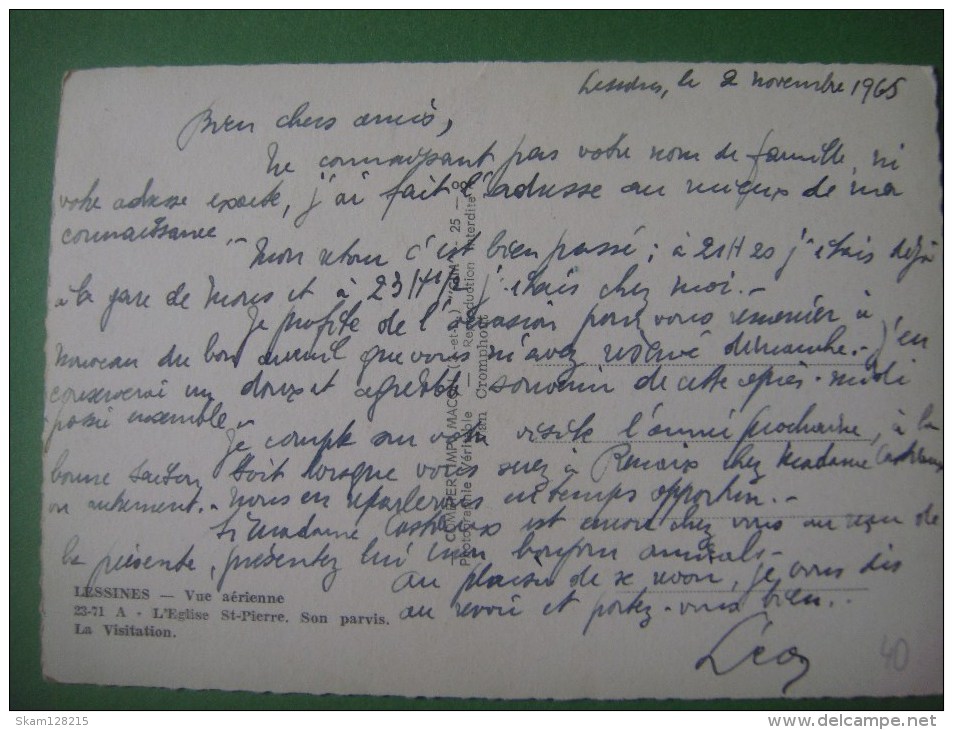 Lessines, le 2 novembre 1965
Bien chers amis,
Ne connaissant pas votre nom de famille, ni
votre adresse exacte, j'ai fait l'adresse au mieux de ma
connaissance.
Mon retour c'est bien passé ; à 21H20 j'étais déjà
à la gare de Mons et à 23H j'étais chez moi.-
Je profite de l'occasion pour vous remercier à
nouveau du bon accueil que vous m'avez réservé dimanche.- J'en
conserverai un doux et agréable souvenir de cette après-midi
passé ensemble.
Je compte sur votre visite l'année prochaine, à la
bonne saison, soit lorsque vous serez à Renaix chez Madame
ou autrement.- Nous en reparlerons en temps opportun.-
Si Madame est encore chez vous au reçu de
la présente, présentez lui mon bonjour amical.-
Au plaisir de se revoir, je vous dis
au revoir et portez-vous bien..
Léon
40
LESSINES — Vue aérienne
23-71 A - L'Eglise St-Pierre. Son parvis.
La Visitation.
COMBIER IMP. MACON (S.-et-L.) 25 — 8
Photographie Véritable — Reproduction Interdite
Van Cromphout
Skam128215
www.delcampe.net